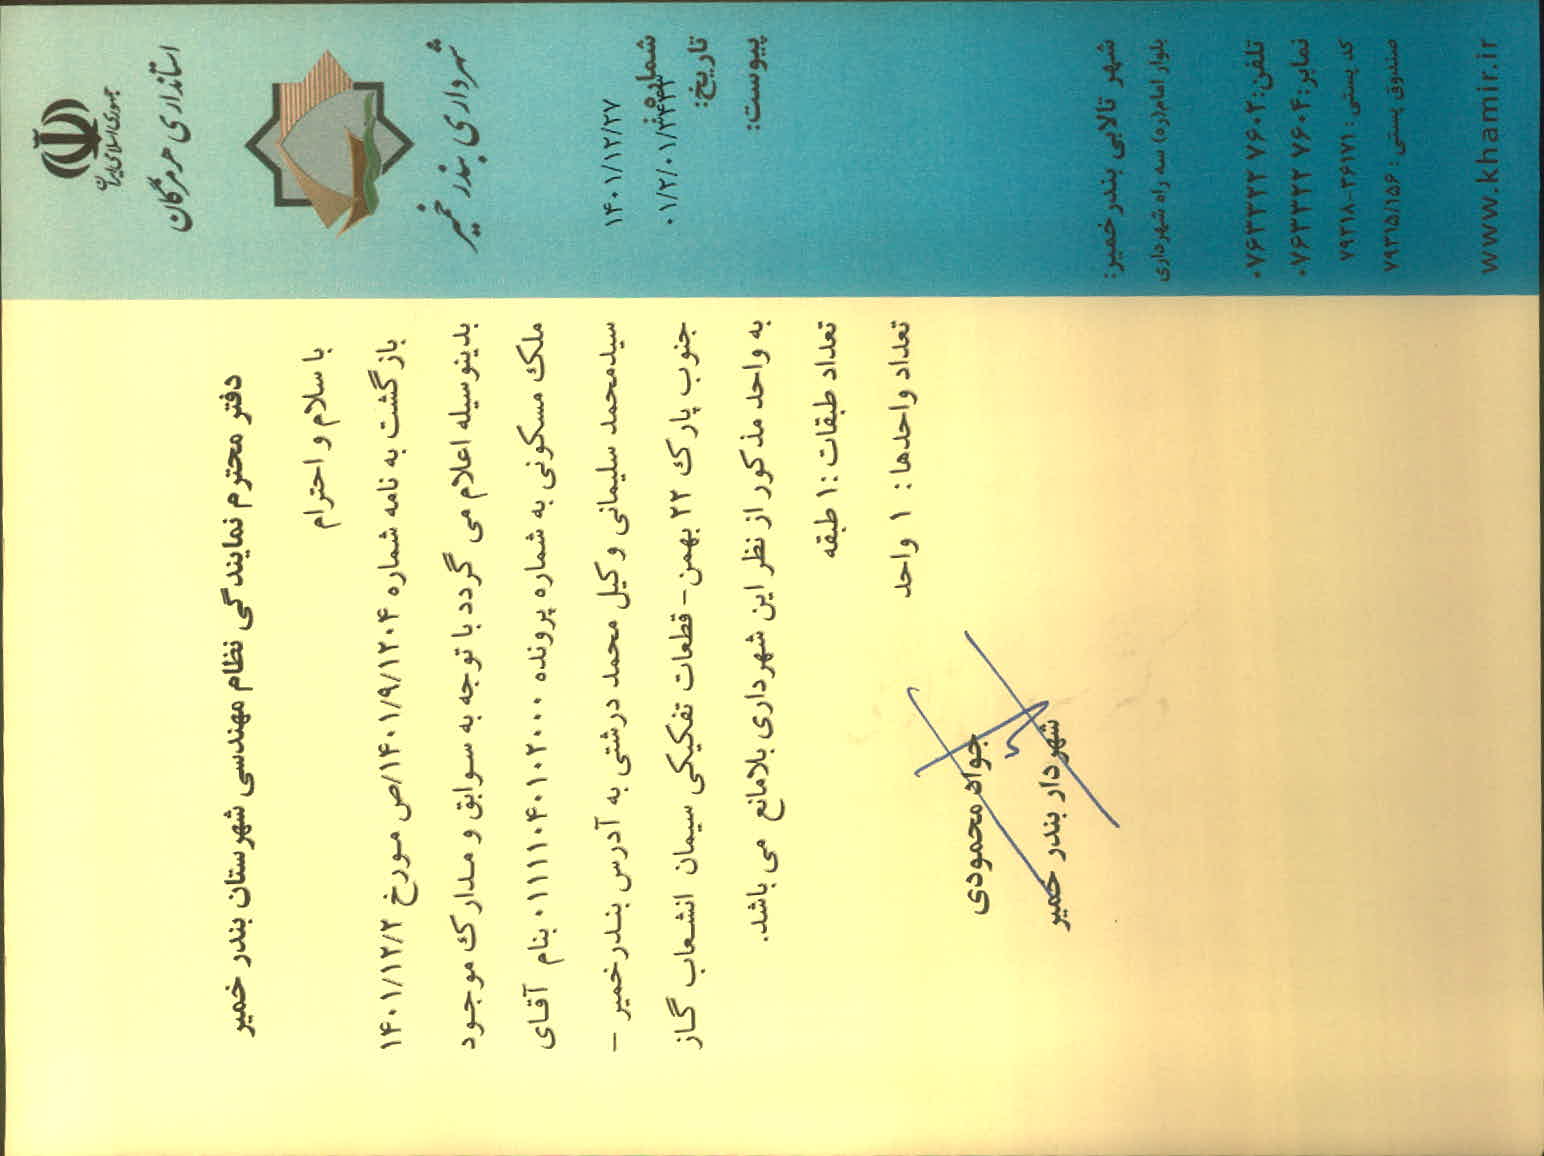 جمهوری اسلامی ایران
استانداری هرمزگان
شهرداری بندر خمیر
۱۴۰۱/۱۲/۲۷
شماره:
تاریخ:
پیوست:
شهر تالابی بندر خمیر:
بلوار امام(ره) سه راه شهرداری
تلفن: ۰۷۶۳۳۲۲ ۷۶۰۲
نمابر: ۰۷۶۳۳۲۲ ۷۶۰۴
کد پستی: ۷۹۳۱۸-۳۶۱۷۱
صندوق پستی: ۷۹۳۱۵/۱۵۶
www.khamir.ir
دفتر محترم نمایندگی نظام مهندسی شهرستان بندر خمیر
با سلام و احترام
بازگشت به نامه شماره ۱۴۰۱/۹/۱۲۰۴/ص مورخ ۱۴۰۱/۱۲/۲
بدینوسیله اعلام می گردد با توجه به سوابق و مدارک موجود
ملک مسکونی به شماره پرونده ۰۱۱۱۱۰۴۰۱۰۲۰۰۰ بنام آقای
سیدمحمد سلیمانی وکیل محمد درشتی به آدرس بندرخمیر –
جنوب پارک ۲۲ بهمن- قطعات تفکیکی سیمان انشعاب گاز
به واحد مذکور از نظر این شهرداری بلامانع می باشد.
تعداد طبقات :۱ طبقه
تعداد واحدها : ۱ واحد
جواد محمودی
شهردار بندر خمیر